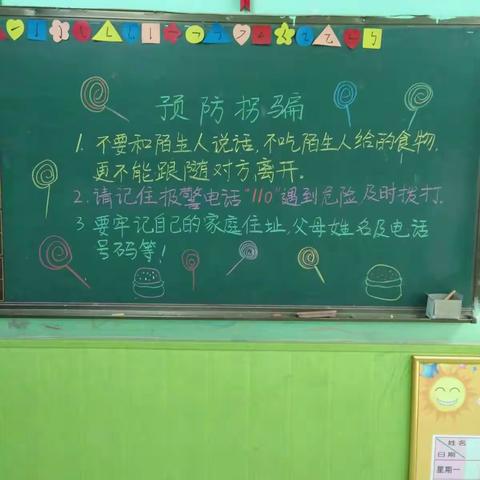 预防拐骗
1. 不要和陌生人说话,不吃陌生人给的食物,
更不能跟随对方离开.
2. 请记住报警电话"110"遇到危险及时拨打.
3 要牢记自己的家庭住址,父母姓名及电话
号码等!
姓名
日期
星期一